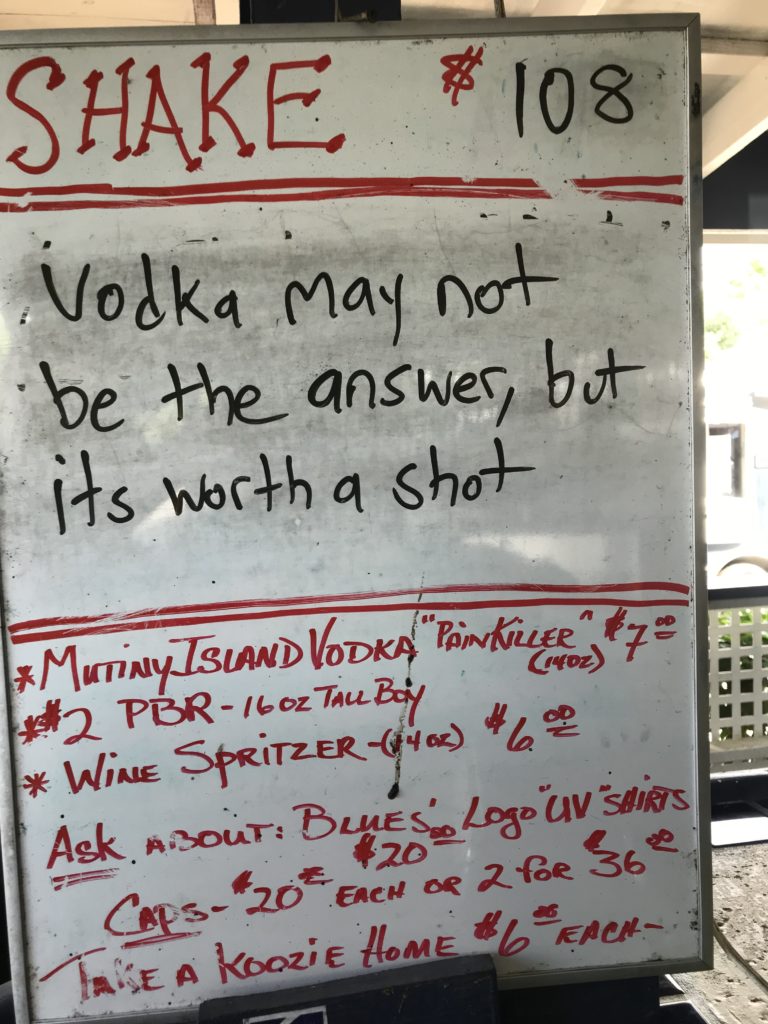 SHAKE $ 108
Vodka may not
be the answer, but
its worth a shot
*MUTINY ISLAND VODKA "PAINKILLER" $7 00
(14OZ)
*$2 PBR - 16 OZ TALL BOY
* WINE SPRITZER - (14 OZ) $6 00
ASK ABOUT: BLUES' LOGO "UV" SHIRTS
$20 00
CAPS - $20 00 EACH OR 2 FOR $36 00
TAKE A KOOZIE HOME $6 00 EACH -